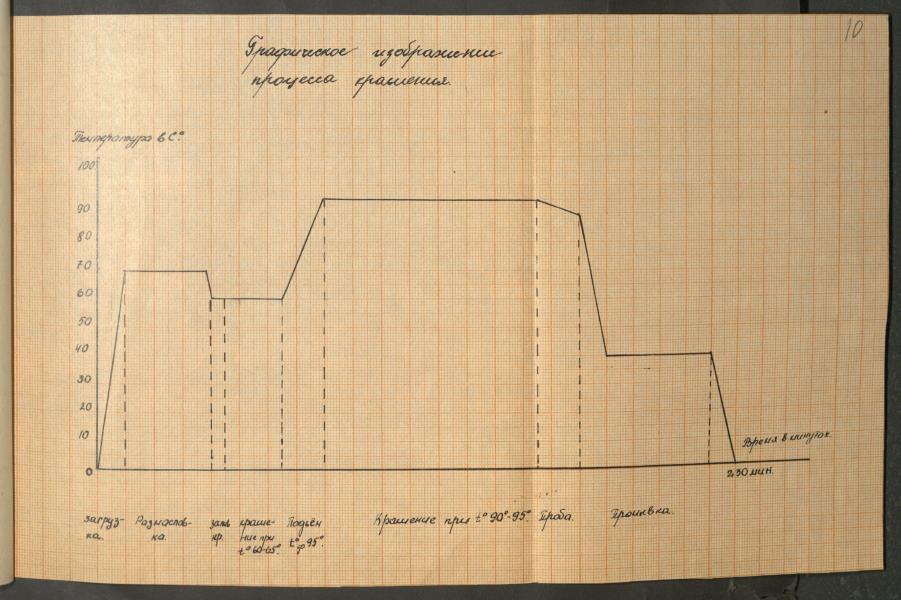 10
Графическое изображение
процесса крашения.
Температура в С°.
100
90
80
70
60
50
40
30
20
10
0
Время в минутах.
230 мин.
Загруз-
ка.
Размаслов-
ка.
залив
кр.
краше-
ние при
t° 60-65°.
Подъём
t° до 95°.
Крашение при t° 90°-95°.
Проба.
Промывка.